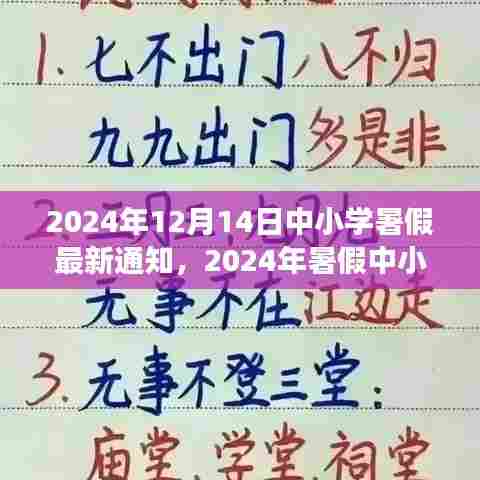 1. 七不出门八不归
九九出门多是非
2024年12月14日中小学暑假
最新通知，2024年暑假中小
无事不在江边走
3. 无事不登三堂：
庙堂、学堂、祠堂